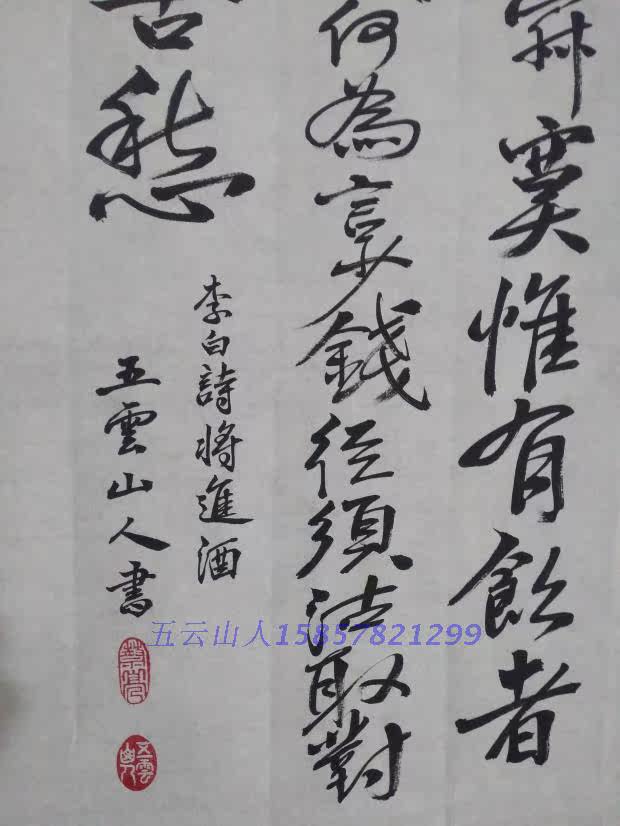 寂寞惟有飲者
何為言少錢徑須沽取對
古愁
李白詩將進酒
五雲山人書
五云山人15857821299